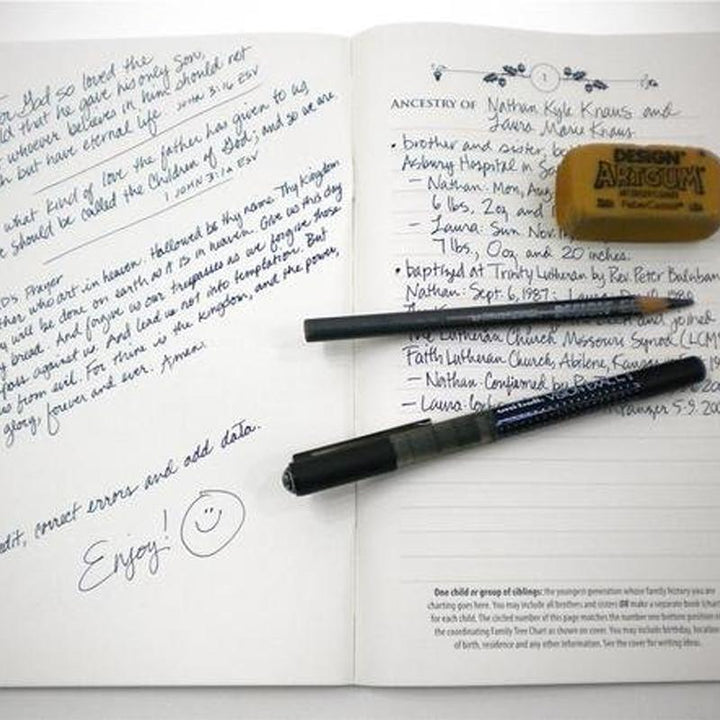 or God so loved the
ld that he gave his only Son,
whoever believes in him should not
h but have eternal life JOHN 3:16 ESV
what kind of love the father has given to us
e should be called the Children of God; and so we are.
1 JOHN 3:1A ESV
D's Prayer
ther who art in heaven. Hallowed be thy name. Thy Kingdom
y will be done on earth as it is in heaven. Give us this day
y bread. And forgive us our trespasses as we forgive those
pass against us. And lead us not into temptation. But
us from evil. For thine is the kingdom, and the power,
glory, forever and ever. Amen.
edit, correct errors and add data.
Enjoy!
1
ANCESTRY OF Nathan Kyle Knaus and
Laura Marie Knaus
• brother and sister, b
Asbury Hospital in Sa
– Nathan: Mon, Aug
6 lbs, 2oz and
– Laura: Sun Nov.
7 lbs, 0oz and 20 inches.
• baptized at Trinity Lutheran by Rev. Peter
Nathan: Sept. 6, 1987; Laura
and joined
The Lutheran Church Missouri Synod (LCM
Faith Lutheran Church, Abilene, Kansas
– Nathan: Confirmed by
– Laura: 5.5.20
DESIGN
ARTGUM
FaberCastell
One child or group of siblings: the youngest generation whose family history you are
charting goes here. You may include all brothers and sisters OR make a separate book (chart)
for each child. The circled number of this page matches the number one buttons position on
the coordinating Family Tree Chart as shown on cover. You may include birthday, location
of birth, residence and any other information. See the cover for writing ideas.